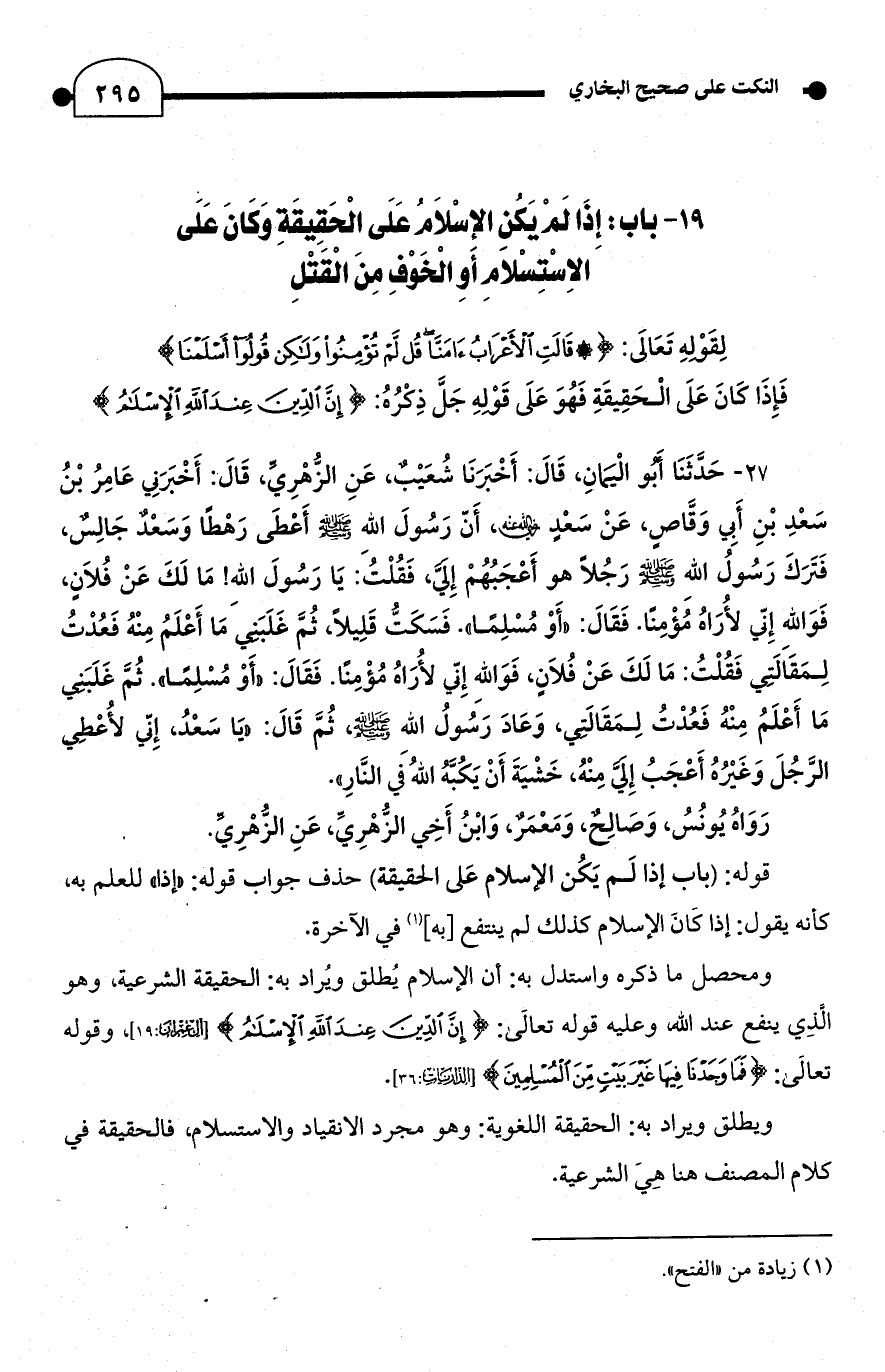 النكت على صحيح البخاري
٢٩٥
١٩- باب: إِذَا لَمْ يَكُنِ الإِسْلاَمُ عَلَى الْحَقِيقَةِ وَكَانَ عَلَى
الاِسْتِسْلاَمِ أَوِ الْخَوْفِ مِنَ الْقَتْلِ
لِقَوْلِهِ تَعَالَى: ﴿۞ قَالَتِ ٱلْأَعْرَابُ ءَامَنَّاۖ قُل لَّمْ تُؤْمِنُوا۟ وَلَـٰكِن قُولُوٓا۟ أَسْلَمْنَا﴾
فَإِذَا كَانَ عَلَى الْـحَقِيقَةِ فَهُوَ عَلَى قَوْلِهِ جَلَّ ذِكْرُهُ: ﴿إِنَّ ٱلدِّينَ عِندَ ٱللَّهِ ٱلْإِسْلَـٰمُ﴾
٢٧- حَدَّثَنَا أَبُو الْيَمَانِ، قَالَ: أَخْبَرَنَا شُعَيْبٌ، عَنِ الزُّهْرِيِّ، قَالَ: أَخْبَرَنِي عَامِرُ بْنُ
سَعْدِ بْنِ أَبِي وَقَّاصٍ، عَنْ سَعْدٍ رضي الله عنه، أَنّ رَسُولَ الله ﷺ أَعْطَى رَهْطًا وَسَعْدٌ جَالِسٌ،
فَتَرَكَ رَسُولُ الله ﷺ رَجُلاً هو أَعْجَبُهُمْ إِلَيَّ، فَقُلْتُ: يَا رَسُولَ اللهِ! مَا لَكَ عَنْ فُلاَنٍ،
فَوَاللهِ إِنِّي لأَرَاهُ مُؤْمِنًا. فَقَالَ: «أَوْ مُسْلِمًـا». فَسَكَتُّ قَلِيلاً، ثُمَّ غَلَبَنِي مَا أَعْلَمُ مِنْهُ فَعُدْتُ
لِـمَقَالَتِي فَقُلْتُ: مَا لَكَ عَنْ فُلاَنٍ، فَوَالله إِنِّي لأَرَاهُ مُؤْمِنًا. فَقَالَ: «أَوْ مُسْلِمًـا». ثُمَّ غَلَبَنِي
مَا أَعْلَمُ مِنْهُ فَعُدْتُ لِـمَقَالَتِي، وَعَادَ رَسُولُ الله ﷺ، ثُمَّ قَالَ: «يَا سَعْدُ، إِنِّي لأُعْطِي
الرَّجُلَ وَغَيْرُهُ أَعْجَبُ إِلَيَّ مِنْهُ، خَشْيَةَ أَنْ يَكُبَّهُ اللهُ فِي النَّارِ».
رَوَاهُ يُونُسُ، وَصَالِحٌ، وَمَعْمَرٌ، وَابْنُ أَخِي الزُّهْرِيِّ، عَنِ الزُّهْرِيِّ.
قوله: (باب إذا لَـم يَكُن الإسلام عَلى الحقيقة) حذف جواب قوله: «إذا» للعلم به،
كأنه يقول: إذا كَانَ الإسلام كذلك لم ينتفع [به](١) في الآخرة.
ومحصل ما ذكره واستدل به: أن الإسلام يُطلق ويُراد به: الحقيقة الشرعية، وهو
الَّذِي ينفع عند الله، وعليه قوله تعالَى: ﴿إِنَّ ٱلدِّينَ عِندَ ٱللَّهِ ٱلْإِسْلَـٰمُ﴾ [آل عمران: ١٩]، وقوله
تعالَى: ﴿فَمَا وَجَدْنَا فِيهَا غَيْرَ بَيْتٍ مِّنَ ٱلْمُسْلِمِينَ﴾ [الذاريات: ٣٦].
ويطلق ويراد به: الحقيقة اللغوية: وهو مجرد الانقياد والاستسلام، فالحقيقة في
كلام المصنف هنا هِيَ الشرعية.
(١) زيادة من «الفتح».